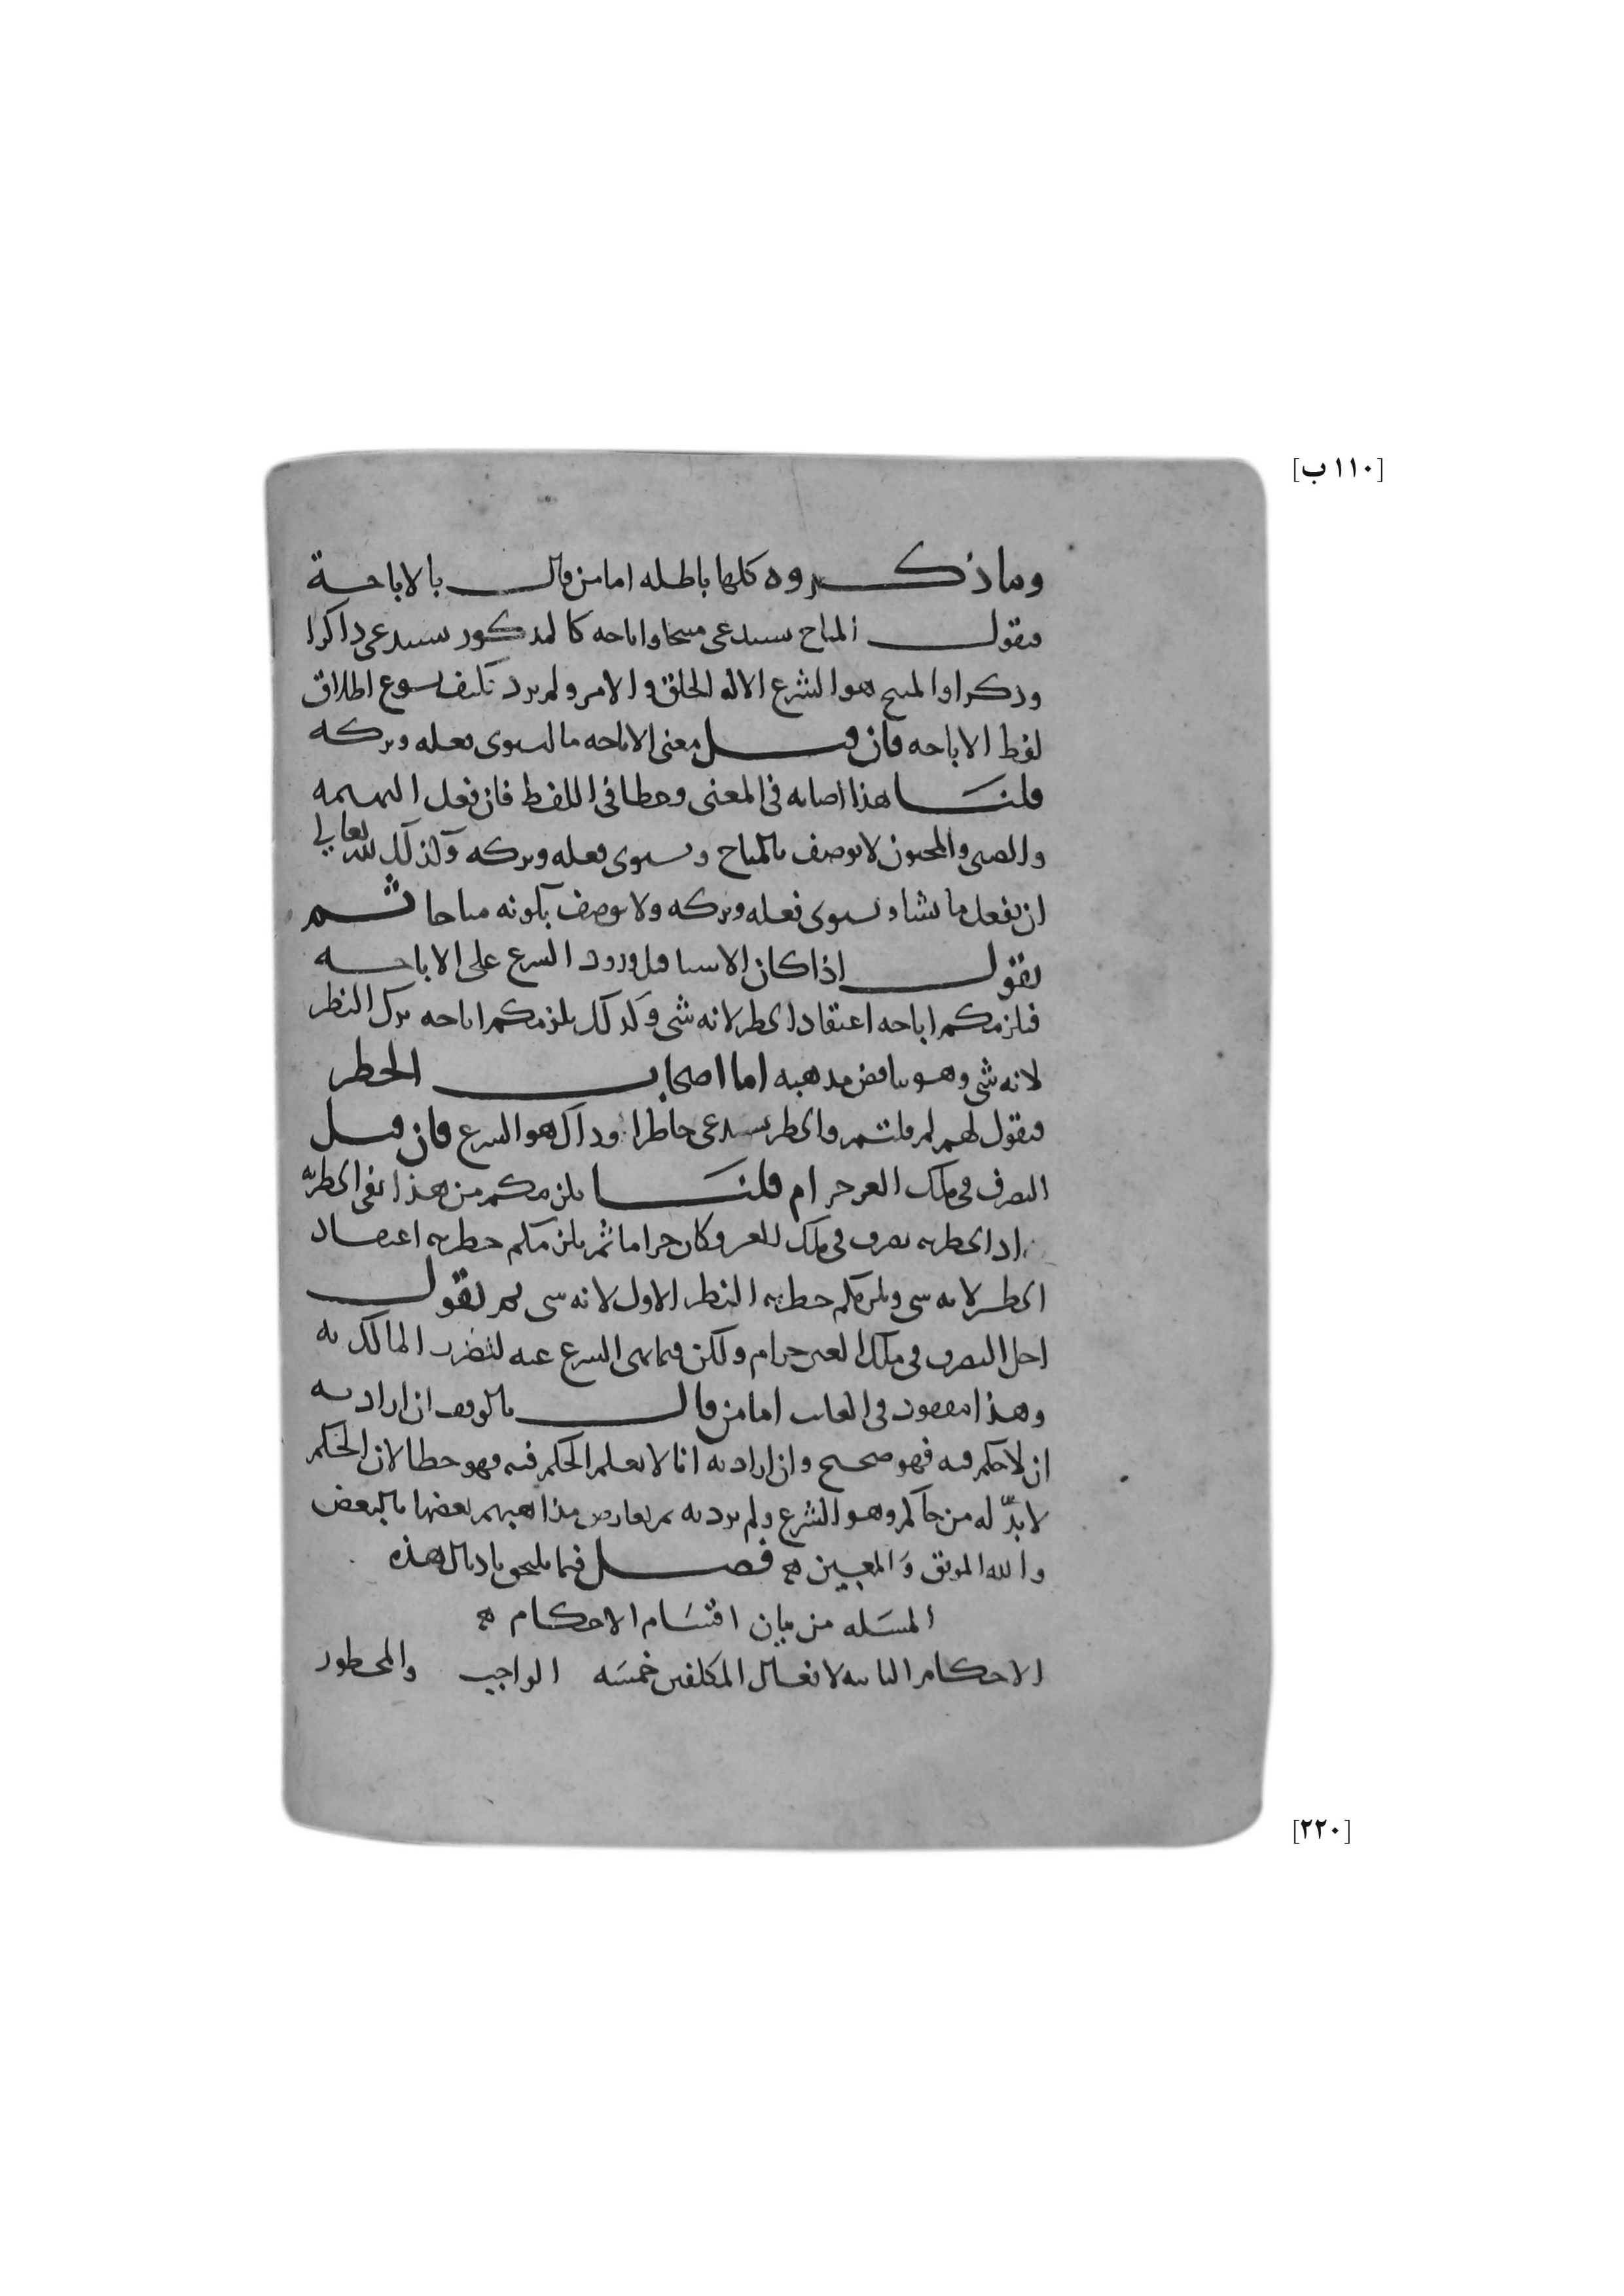 [١١٠ ب]
وما ذكروه كلها باطله اما من قال بالاباحة
فنقول المباح يستدعي مبيحا واباحه كالمذكور يستدعي ذاكرا
وذكرا والمبيح هو الشرع الا له الخلق والامر ولم يرد تكليف يسوغ اطلاق
لفظ الاباحه فان قيل معنى الاباحه ما يستوى فعله وتركه
قلنا هذا اصابه في المعنى وخطا في اللفظ فان فعل البهيمه
والصبي والمجنون لا يوصف بالمباح ويستوى فعله وتركه وكذلك لله تعالى
ان يفعل ما يشا ويستوى فعله وتركه ولا يوصف بكونه مباحا ثم
نقول اذا كان الاشيا قبل ورود الشرع على الاباحه
فلزمكم اباحه اعتقاد الحظر لانه شى وكذلك يلزمكم اباحه ترك النظر
لانه شى وهو يناقض مذهبه اما اصحاب الحظر
فنقول لهم لم قلتم والحظر يستدعي حاظرا وذاك هو الشرع فان قيل
التصرف في ملك الغير حرام قلنا يلزمكم من هذا نفى الحظريه
اذ الحظريه تصرف في ملك الغير وكان حراما ثم يلزمكم حظريه اعتقاد
الحظر لانه شى ويلزمكم حظريه النظر الاول لانه شى ثم نقول
اجل التصرف في ملك الغير حرام ولكن فيما نهى الشرع عنه لتضرر المالك به
وهذا مفقود في الغايب اما من قال بالوقف ان اراد به
ان لا حكم فيه فهو صحيح وان اراد به انا لا نعلم الحكم فيه فهو خطا لان الحكم
لا بدّ له من حاكم وهو الشرع ولم يرد به ثم تعارض مذاهبهم بعضها بالبعض
والله الموفق والمعين ه فصل فيما يلتحق باذيال هذه
المسئله من بيان اقسام الاحكام ه
الاحكام الثابته لافعال المكلفين خمسه الواجب والمحظور
[٢٢٠]